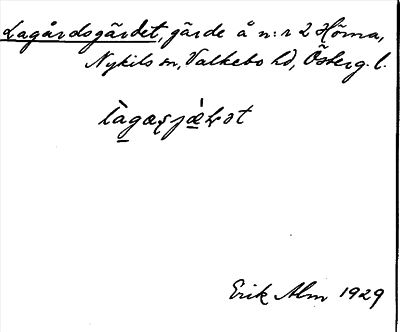 Lagårdsgärdet, gärde å n:r 2 Hörna,
Nykils sn, Valkebo hd, Österg. l.
Erik Alm 1929